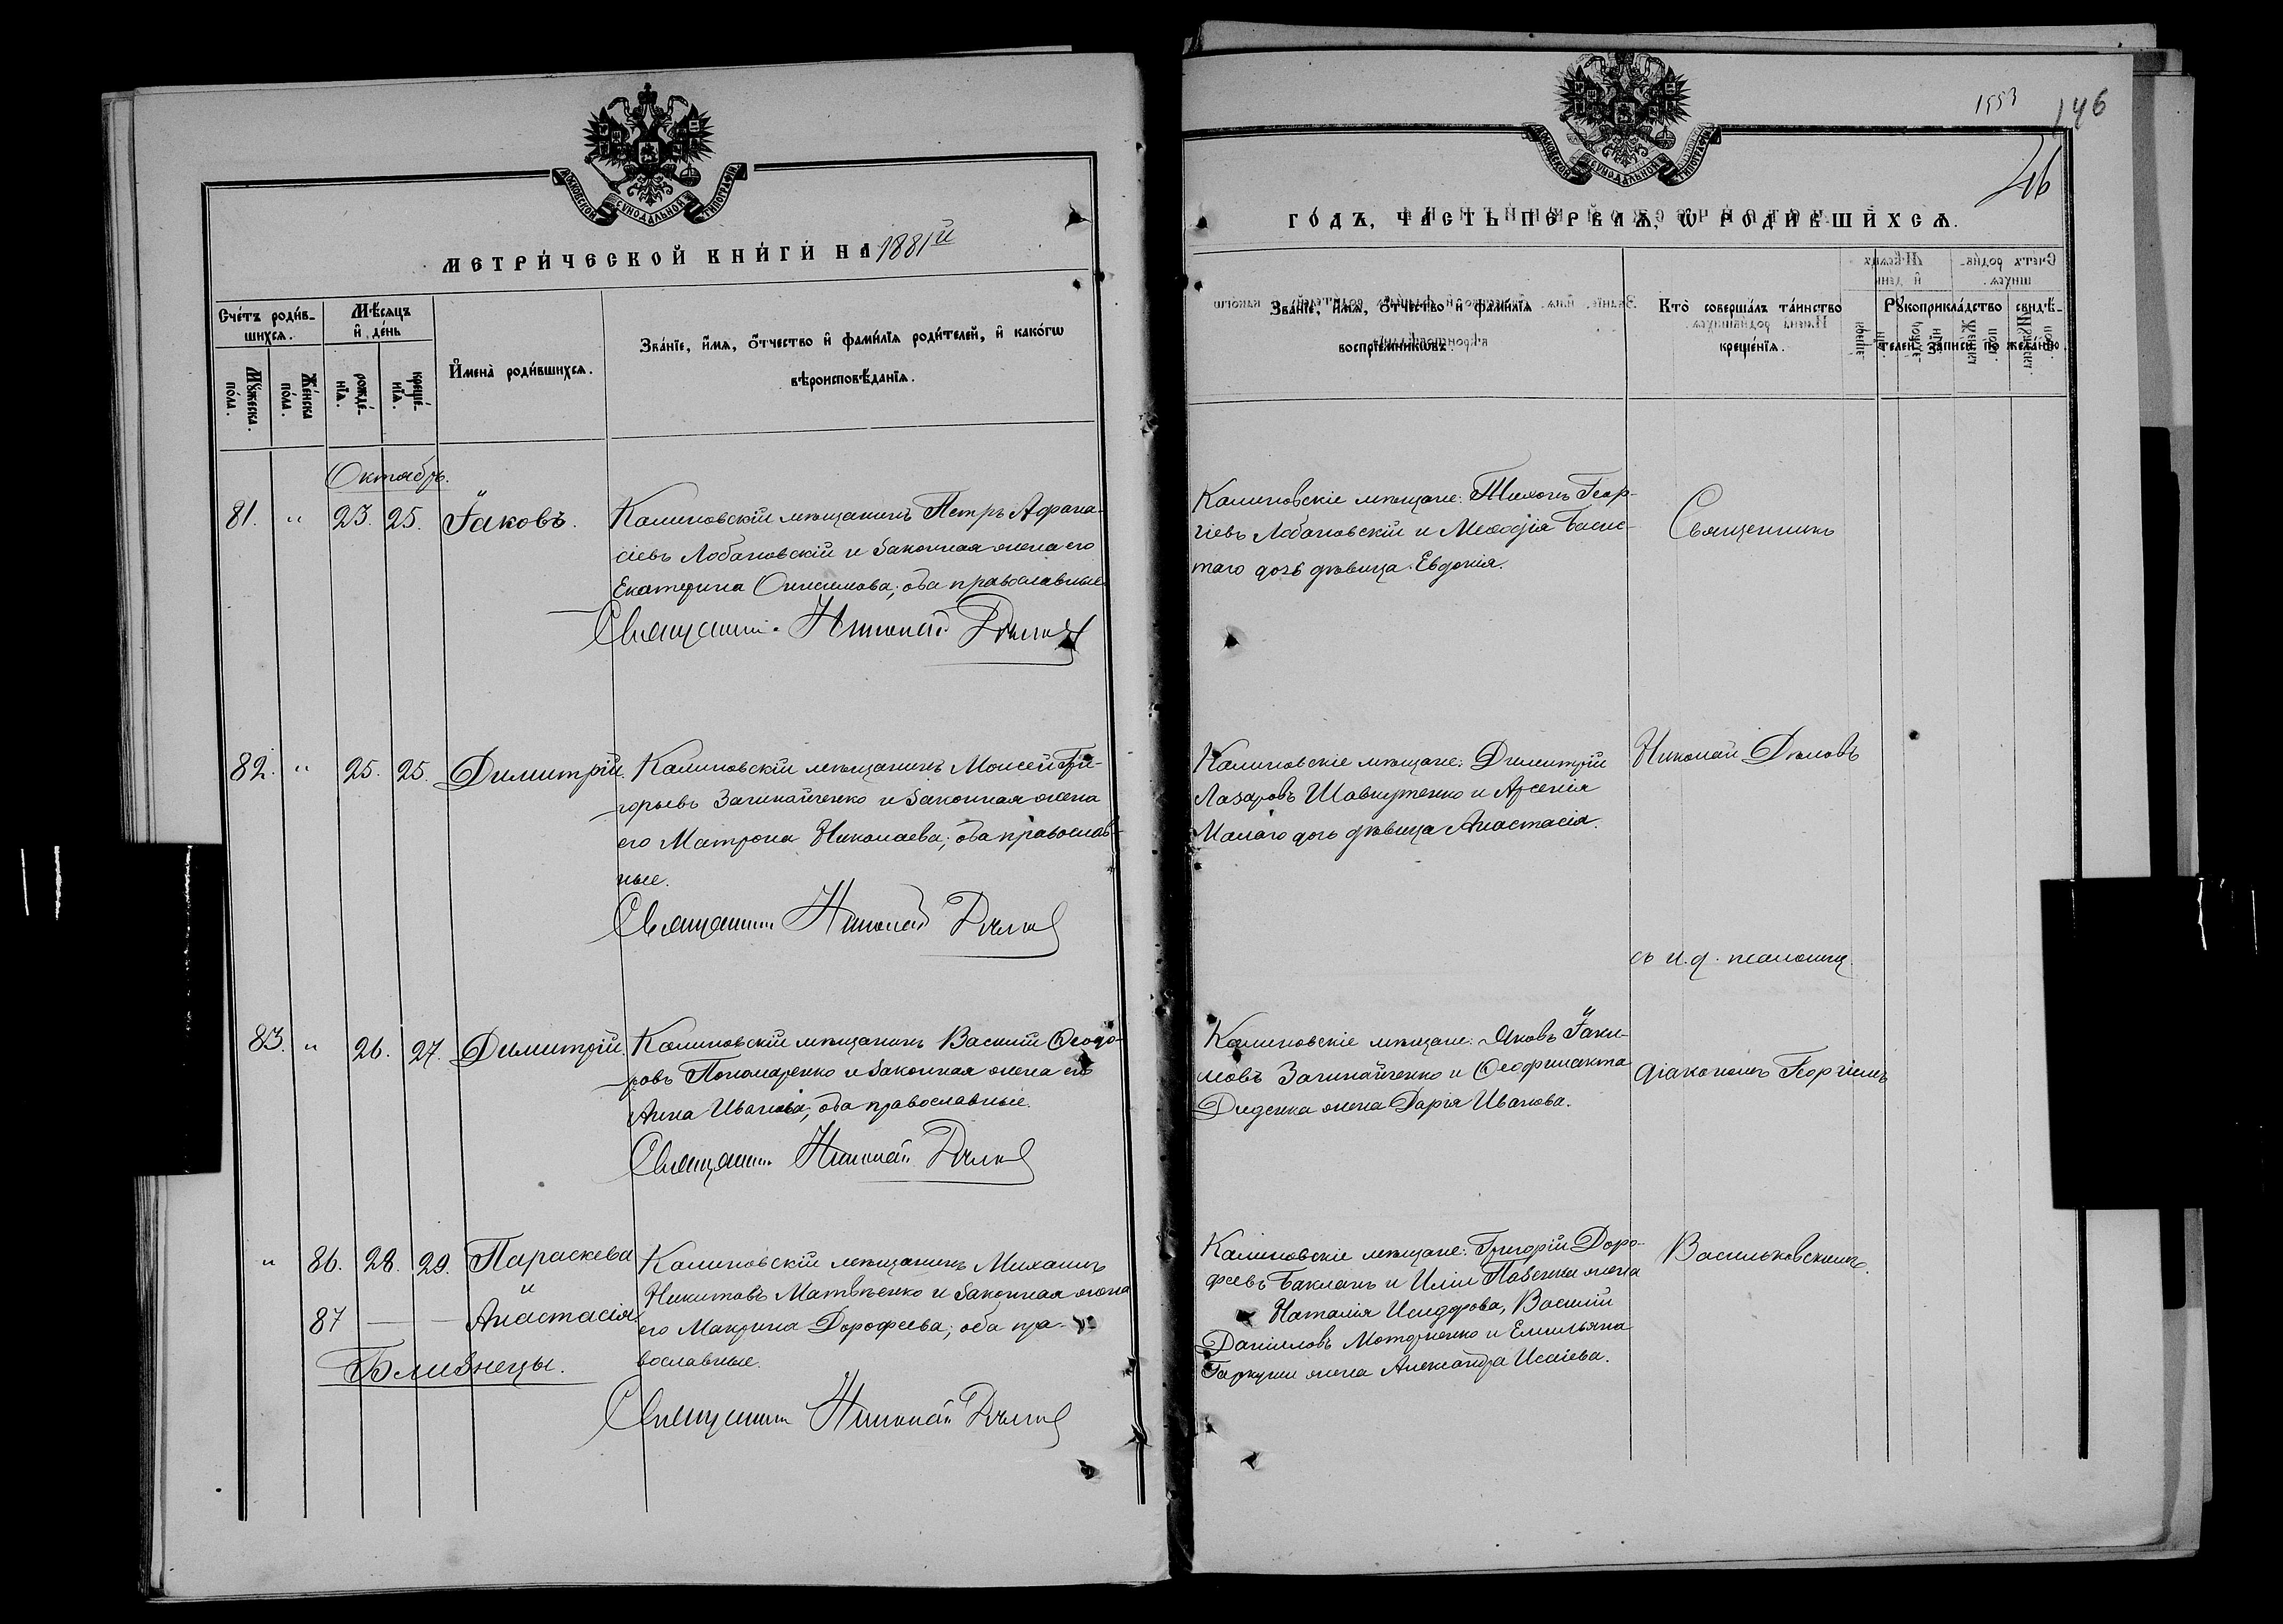 МОСКОВСКОЙ СУНОДАЛЬНОЙ ТИПОГРАФІИ
МЕТРИ́ЧЕСКОЙ КНИ́ГИ НА 1881й
Сче́тъ роди́в-
шихся.
Мѣ́сяцъ
и҆ де́нь
Мꙋ́жеска по́ла.
Же́нска по́ла.
рожде́-
нїа.
креще́-
нїа.
И҆мена̀ роди́вшихся.
Зва́нїе, и҆́мя, о҆́тчество и҆ фами́лїя роди́телей, и҆ како́гѡ
вѣроисповѣ́данїя.
Октябрь.
81. " 23. 25. Іаковъ. Калиновскій мѣщанинъ Петръ Афана-
сіевъ Лобановскій и законная жена его
Екатерина Онисимова; оба православные
Священникъ Николай
82. " 25. 25. Димитрій. Калиновскій мѣщанинъ Моисей Гри-
горьевъ Зачинайченко и законная жена
его Матрона Николаева; оба православ-
ные.
Священникъ Николай
83. " 26. 27. Димитрій. Калиновскій мѣщанинъ Василій Ѳеодо-
ровъ Пономаренко и законная жена его
Анна Иванова; оба православные.
Священникъ Николай
" 86. 28. 29. Параскева Калиновскій мѣщанинъ Михаилъ
и Никитовъ Матвѣенко и законная жена
87 — — Анастасія его Макрина Дорофеева; оба пра-
Близнецы. вославные.
Священникъ Николай
1553
146
МОСКОВСКОЙ СУНОДАЛЬНОЙ ТИПОГРАФІИ
ГО́ДЪ, ЧА́СТЬ ПЕ́РВАЯ, Ѡ РОДИ́ВШИХСЯ.
Зва́нїе, и҆́мя, о҆́тчество и҆ фами́лїя
воспрїе́мникѡвъ.
Кто̀ соверша́лъ та́инство
креще́нїя.
Рꙋкоприкла́дство свидѣ́-
телей за́писи по жела́нїю.
Калиновскіе мѣщане: Тихонъ Геор-
гіевъ Лобановскій и Меѳодія Басис-
таго дочь дѣвица Евдокія.
Священникъ
Калиновскіе мѣщане: Димитрій
Лазаровъ и Арсенія
Малаго дочь дѣвица Анастасія.
Николай
съ и. д. псаломщ.
Калиновскіе мѣщане: Яковъ Іаки-
мовъ Зачинайченко и Ѳеофилакта
Диденка жена Дарія Иванова.
діакономъ Георгіемъ
Калиновскіе мѣщане: Григорій Доро-
феевъ Бакланъ и Иліи жена
Наталія Исидорова, Василій
Даніиловъ и Емильяна
Гаркуши жена Александра Исаіева.
Васильковскимъ.